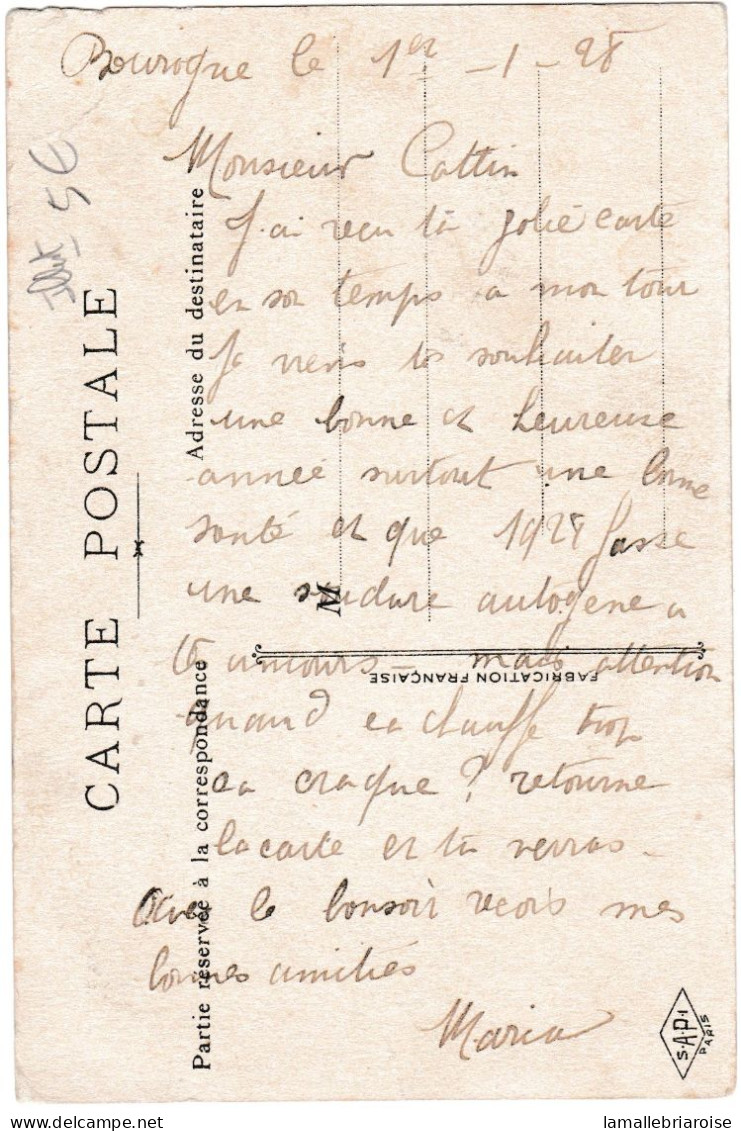 Bourogne le 1er -1-28
Monsieur Cattin
J'ai reçu ta jolie carte
en son temps a mon tour
je viens te souhaiter
une bonne et heureuse
année surtout une bonne
santé et que 1928 fasse
une soudure autogene a
tes amours - mais attention
quand ca chauffe trop
ca craque? retourne
la carte et tu verras -
le bonsoir recois mes
bonnes amitiés
Maria
CARTE POSTALE
Adresse du destinataire
Partie réservée à la correspondance
M
FABRICATION FRANÇAISE
5€
S.A.P.I
PARIS
lamallebriaroise